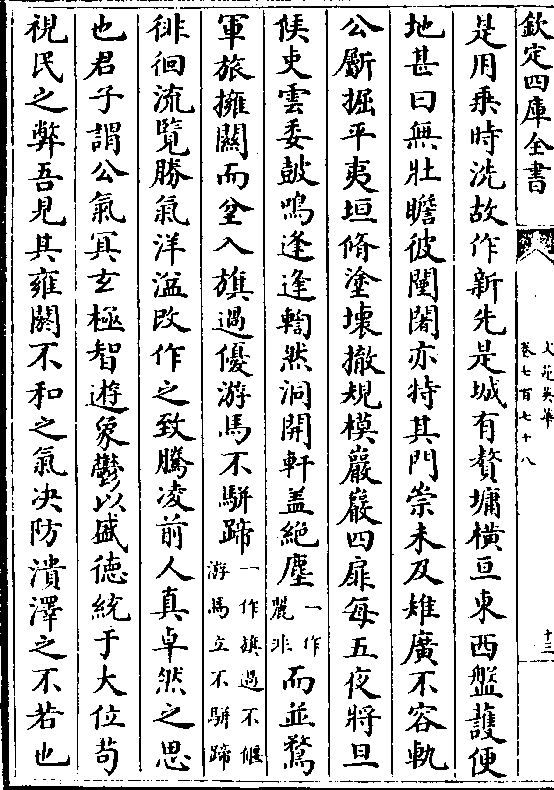 欽定四庫全書
文苑英華
卷七百七十八
十三
是用乗時洗故作新先是城有贅墉橫亘東西盤護便
地甚曰無壯瞻彼闉闍亦特其門崇未及雉廣不容軌
公斸掘平夷垣脩塗壊撤規模巖巖四扉每五夜將旦
侯吏雲委鼓鳴逢逢輷然洞開軒盖絶塵一作麗非而並騖
軍旅擁闗而坌入旗過優游馬不駢蹄一作旗過不偃游馬立不駢蹄
徘徊流覽勝氣洋溢改作之致騰凌前人真卓然之思
也君子謂公氣冥玄極智遊象鬱以盛徳統于大位茍
視民之弊吾見其雍閼不和之氣决防潰澤之不若也